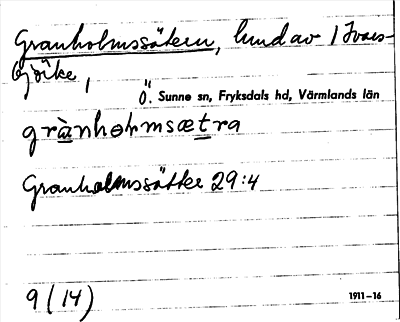 Granholmssätern, lund av 1 Ivars-
björke,
Ö. Sunne sn, Fryksdals hd, Värmlands län
grànholmsætra
Granholmssätter 29:4
9 (14)
1911–16